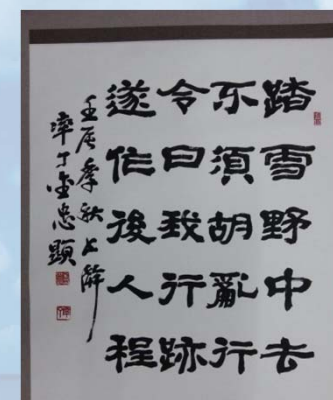 踏雪野中去
不須胡亂行
今日我行跡
遂作後人程
壬辰季秋上澣
率丁金忠顯